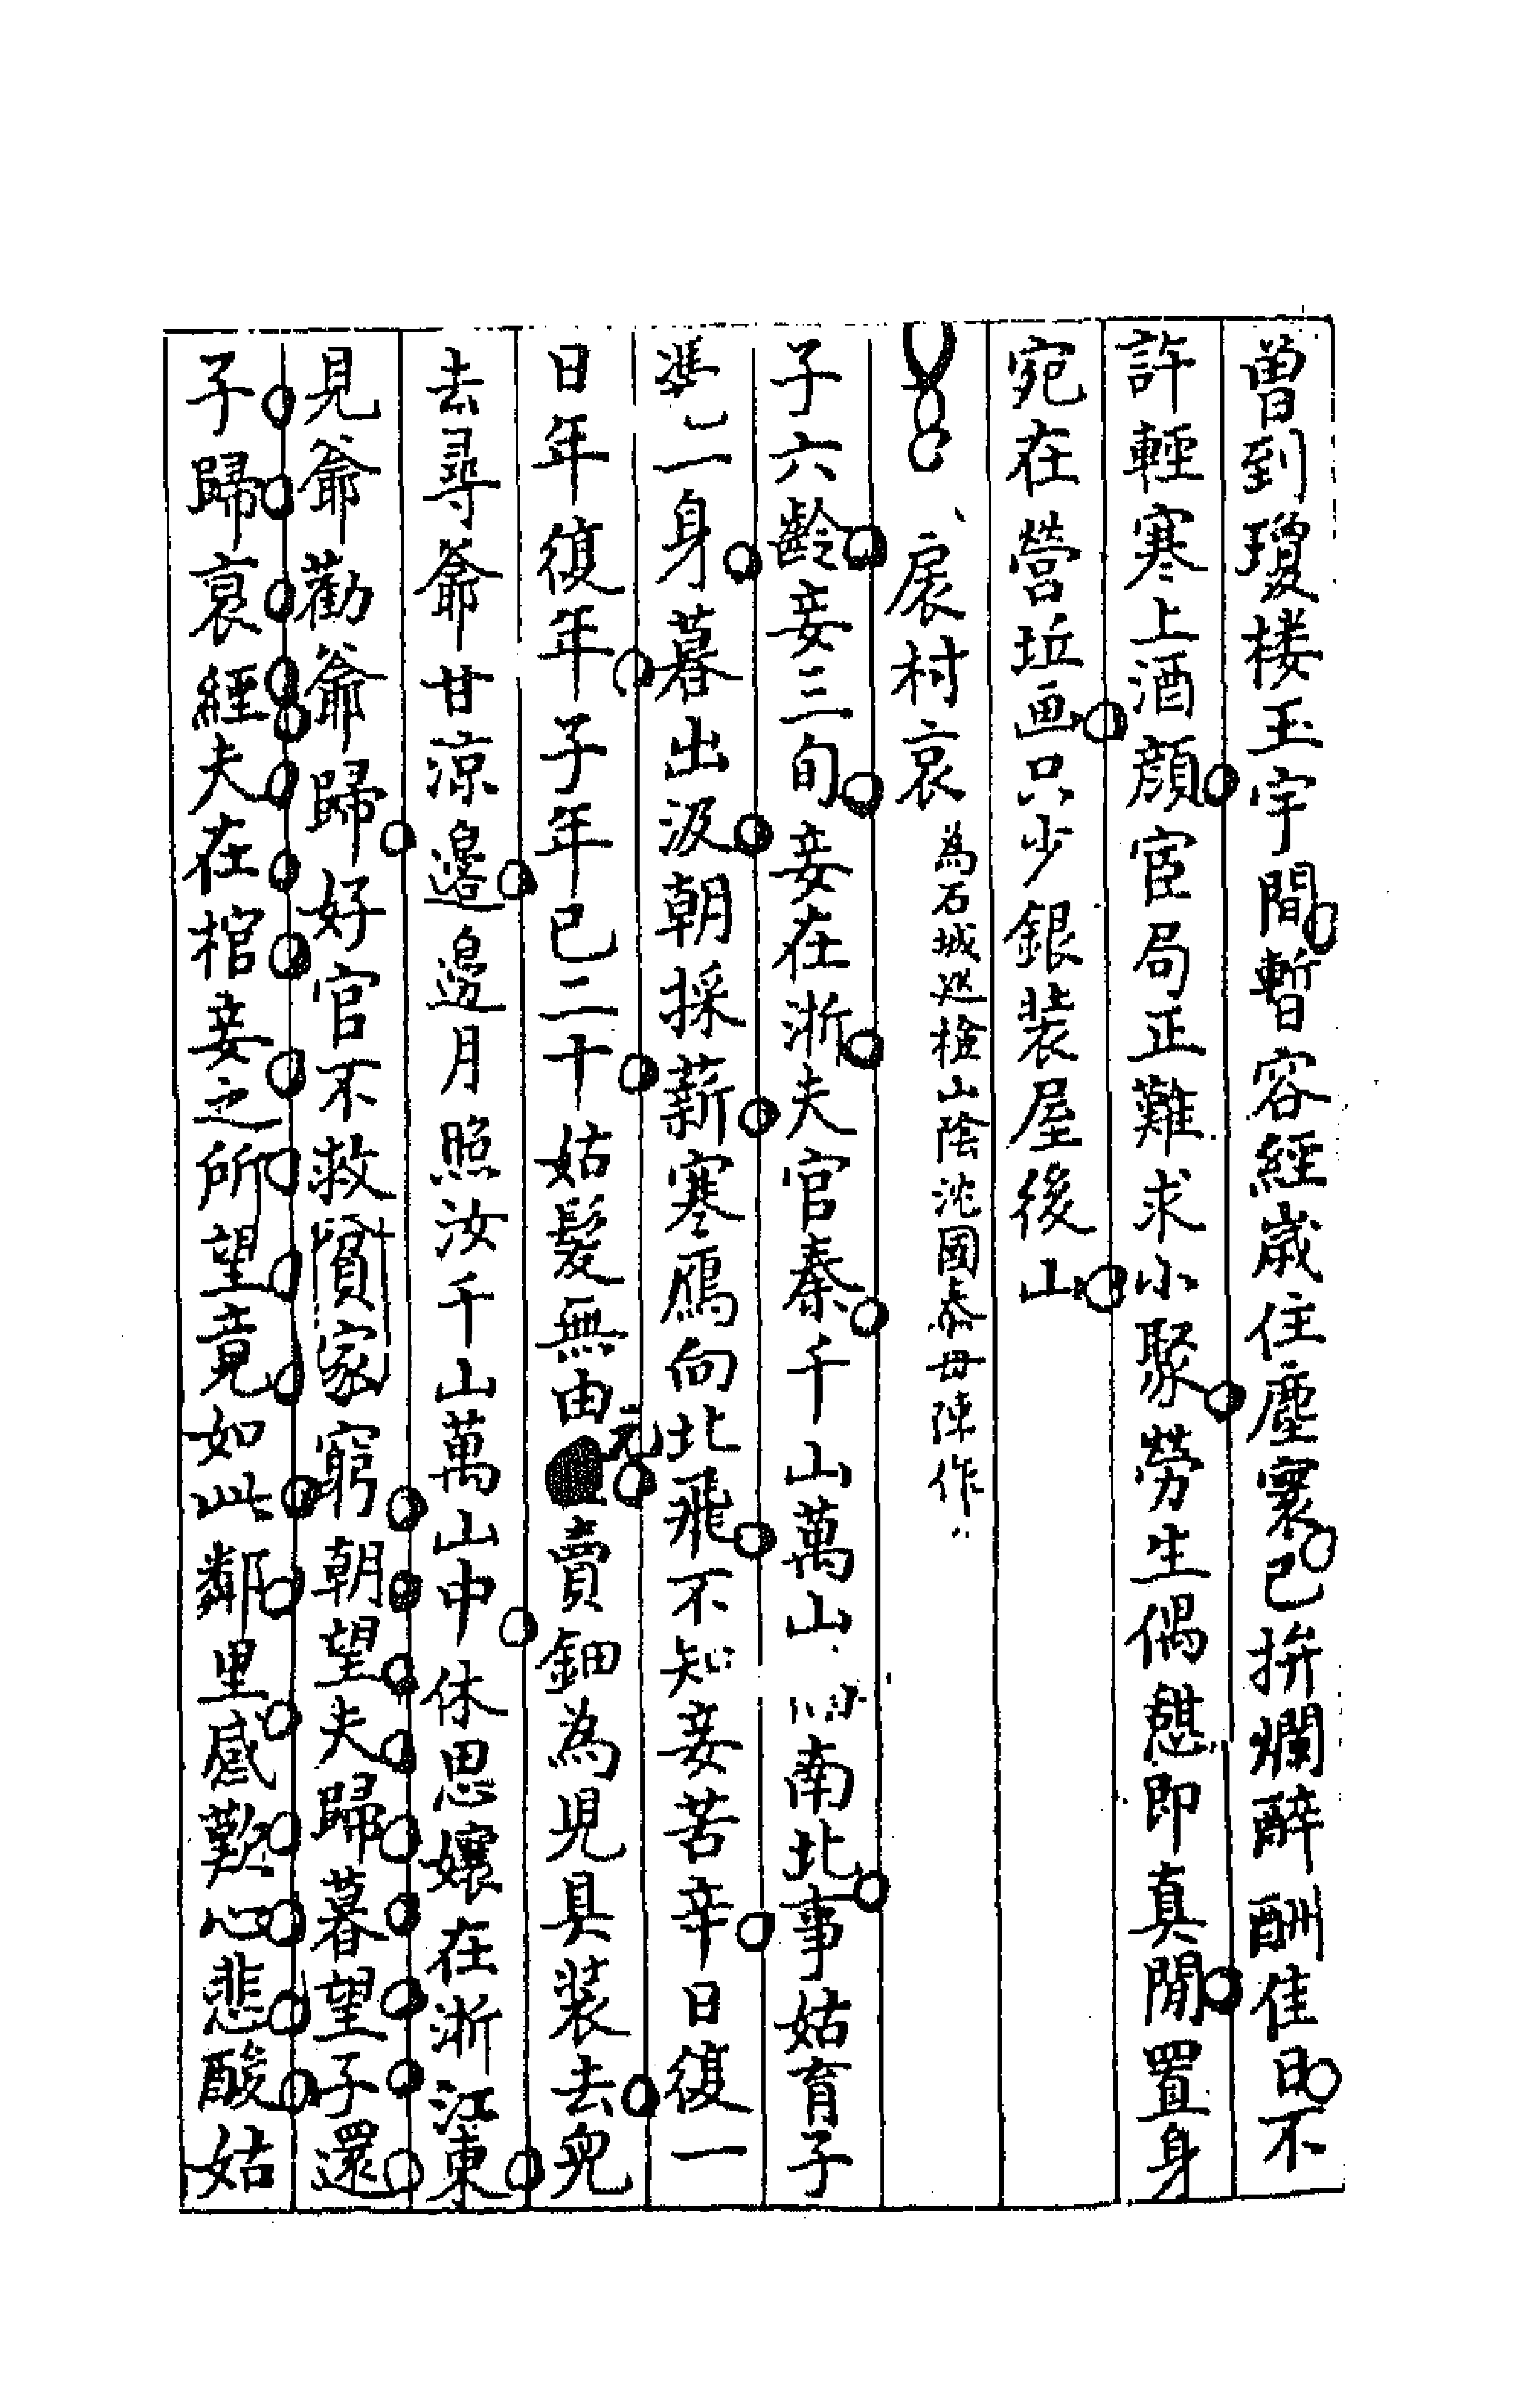 曾到瓊楼玉宇間暫容經歲住塵寰已拚爛醉酬佳日不
許輕寒上酒顔宦局正難求小聚勞生偶憇即真閒置身
宛在營坵画只少銀装屋後山
扆村哀為石城巡检山陰沈國泰母陳作
子六齡妾三旬妾在浙夫官秦千山萬山南北事姑育子
憑一身暮出汲朝採薪寒鴈向北飛不知妾苦辛日復一
日年復年子年已二十姑髮無由元賣鈿為児具装去兒
去尋爺甘涼邊邊月照汝千山萬山中休思孃在浙江東
見爺勸爺歸好官不救貧家窮朝望夫歸暮望子還
子歸衰絰夫在棺妾之所望竟如此鄰里感歎心悲酸姑